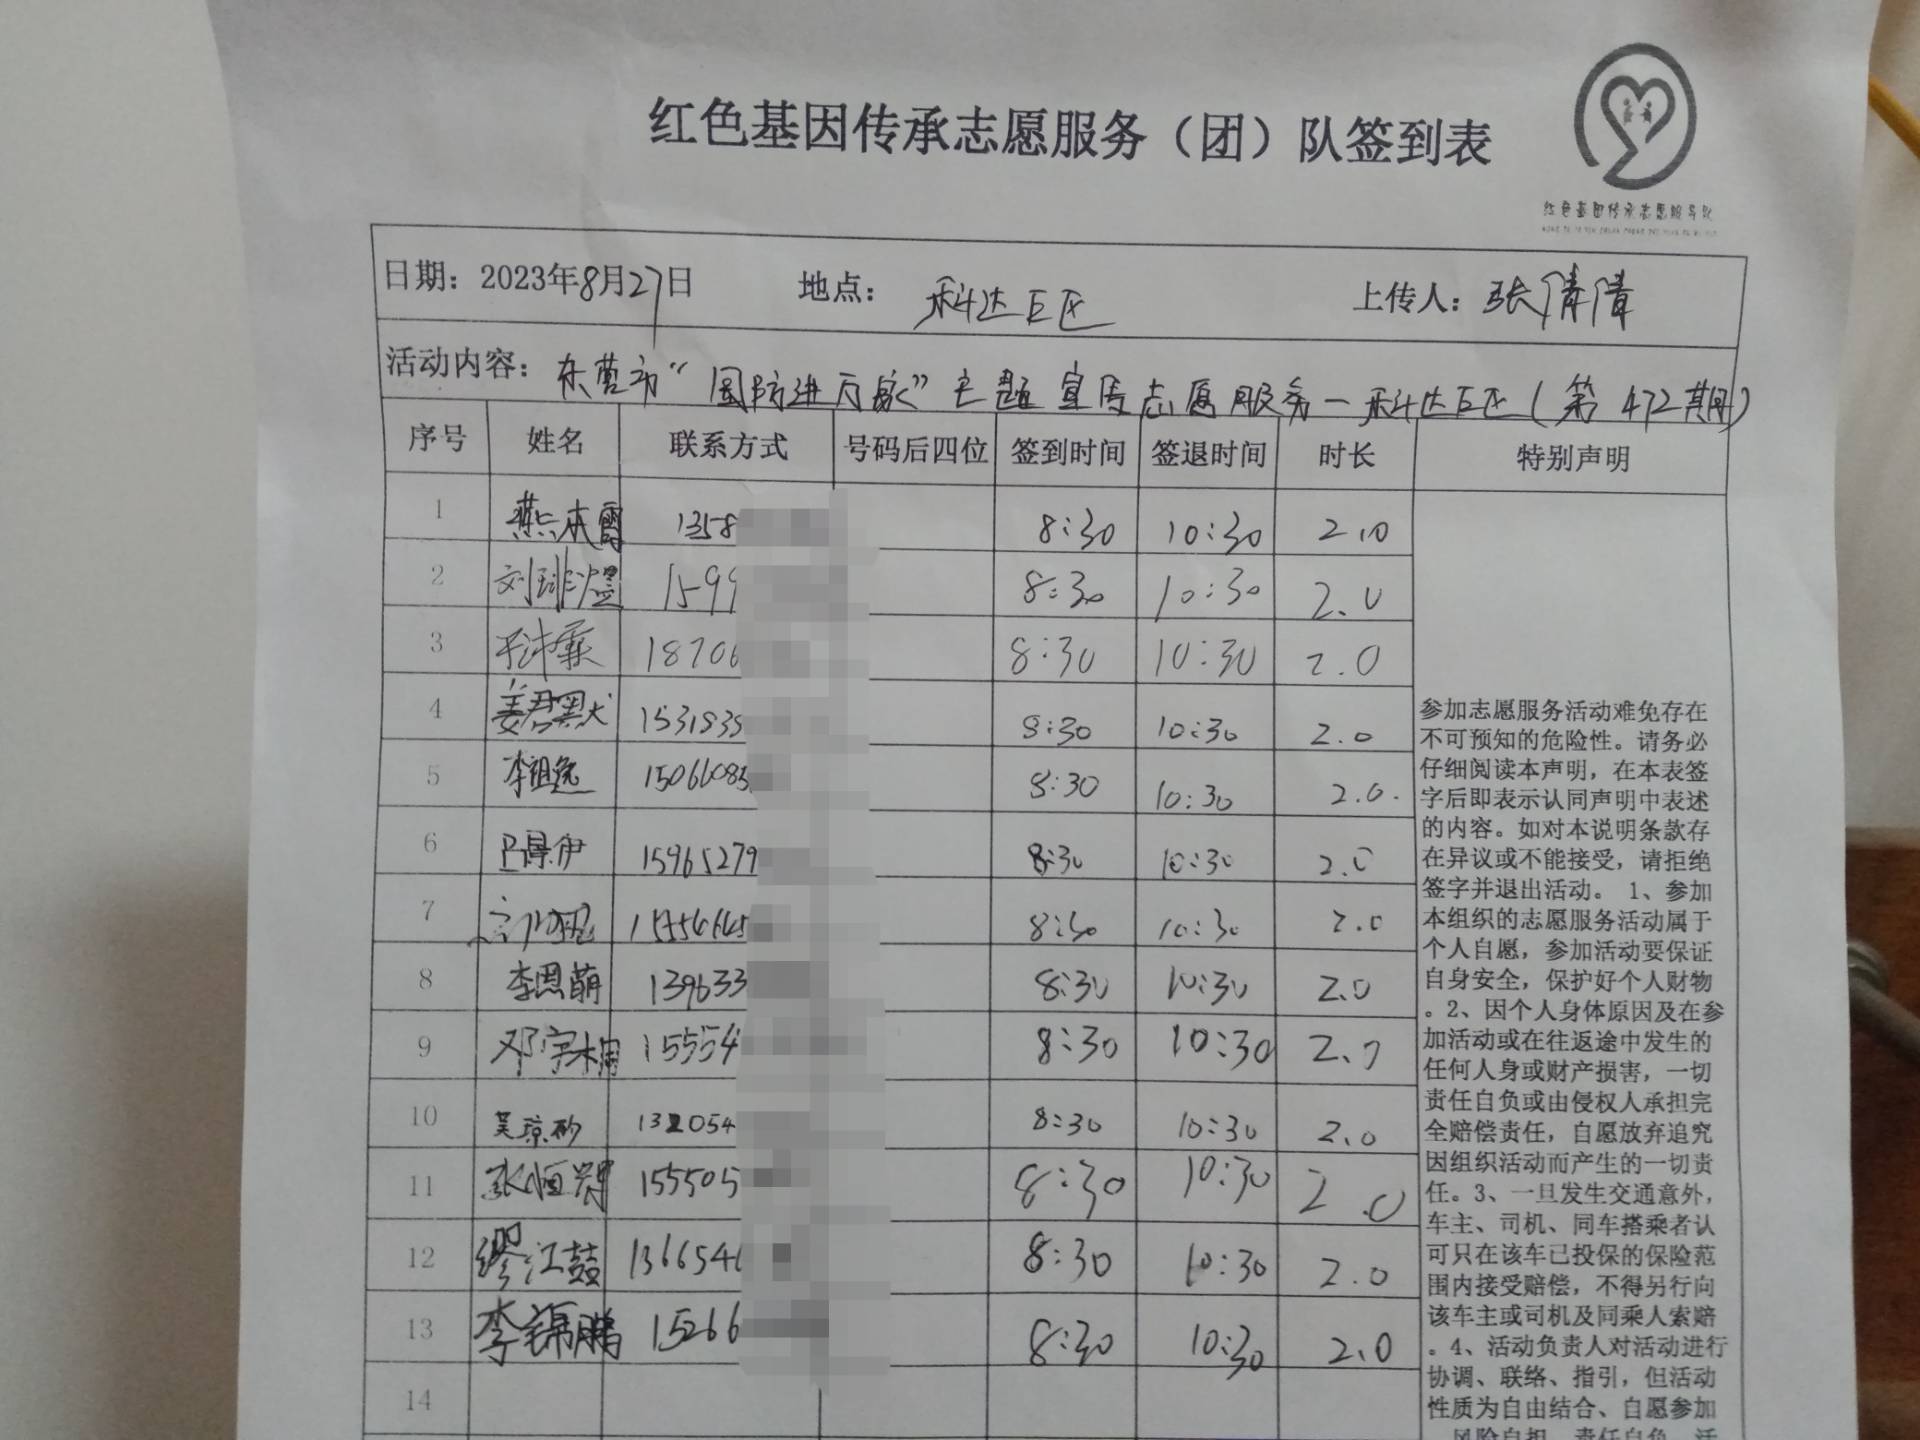 红色基因传承志愿服务（团）队签到表
红色基因传承志愿服务队
日期：2023年8月27日 地点：科达B区 上传人：张倩倩
活动内容：东营市“国防进万家”主题宣传志愿服务-科达B区(第472期)
序号 姓名 联系方式 号码后四位 签到时间 签退时间 时长 特别声明
1 燕本雷 1358 8:30 10:30 2.0
2 刘 1599 8:30 10:30 2.0
3 18706 8:30 10:30 2.0
4 姜君默 1531838 8:30 10:30 2.0
5 李祖逸 15066085 8:30 10:30 2.0
6 吕景伊 15965279 8:30 10:30 2.0
7 8:30 10:30 2.0
8 李恩萌 139633 8:30 10:30 2.0
9 邓宇桐 15554 8:30 10:30 2.0
10 132054 8:30 10:30 2.0
11 张恒 155505 8:30 10:30 2.0
12 缪江鼓 1366546 8:30 10:30 2.0
13 李锦鹏 15266 8:30 10:30 2.0
14
参加志愿服务活动难免存在
不可预知的危险性。请务必
仔细阅读本声明，在本表签
字后即表示认同声明中表述
的内容。如对本说明条款存
在异议或不能接受，请拒绝
签字并退出活动。 1、参加
本组织的志愿服务活动属于
个人自愿，参加活动要保证
自身安全，保护好个人财物
。2、因个人身体原因及在参
加活动或在往返途中发生的
任何人身或财产损害，一切
责任自负或由侵权人承担完
全赔偿责任，自愿放弃追究
因组织活动而产生的一切责
任。3、一旦发生交通意外，
车主、司机、同车搭乘者认
可只在该车已投保的保险范
围内接受赔偿，不得另行向
该车主或司机及同乘人索赔
。4、活动负责人对活动进行
协调、联络、指引，但活动
性质为自由结合、自愿参加